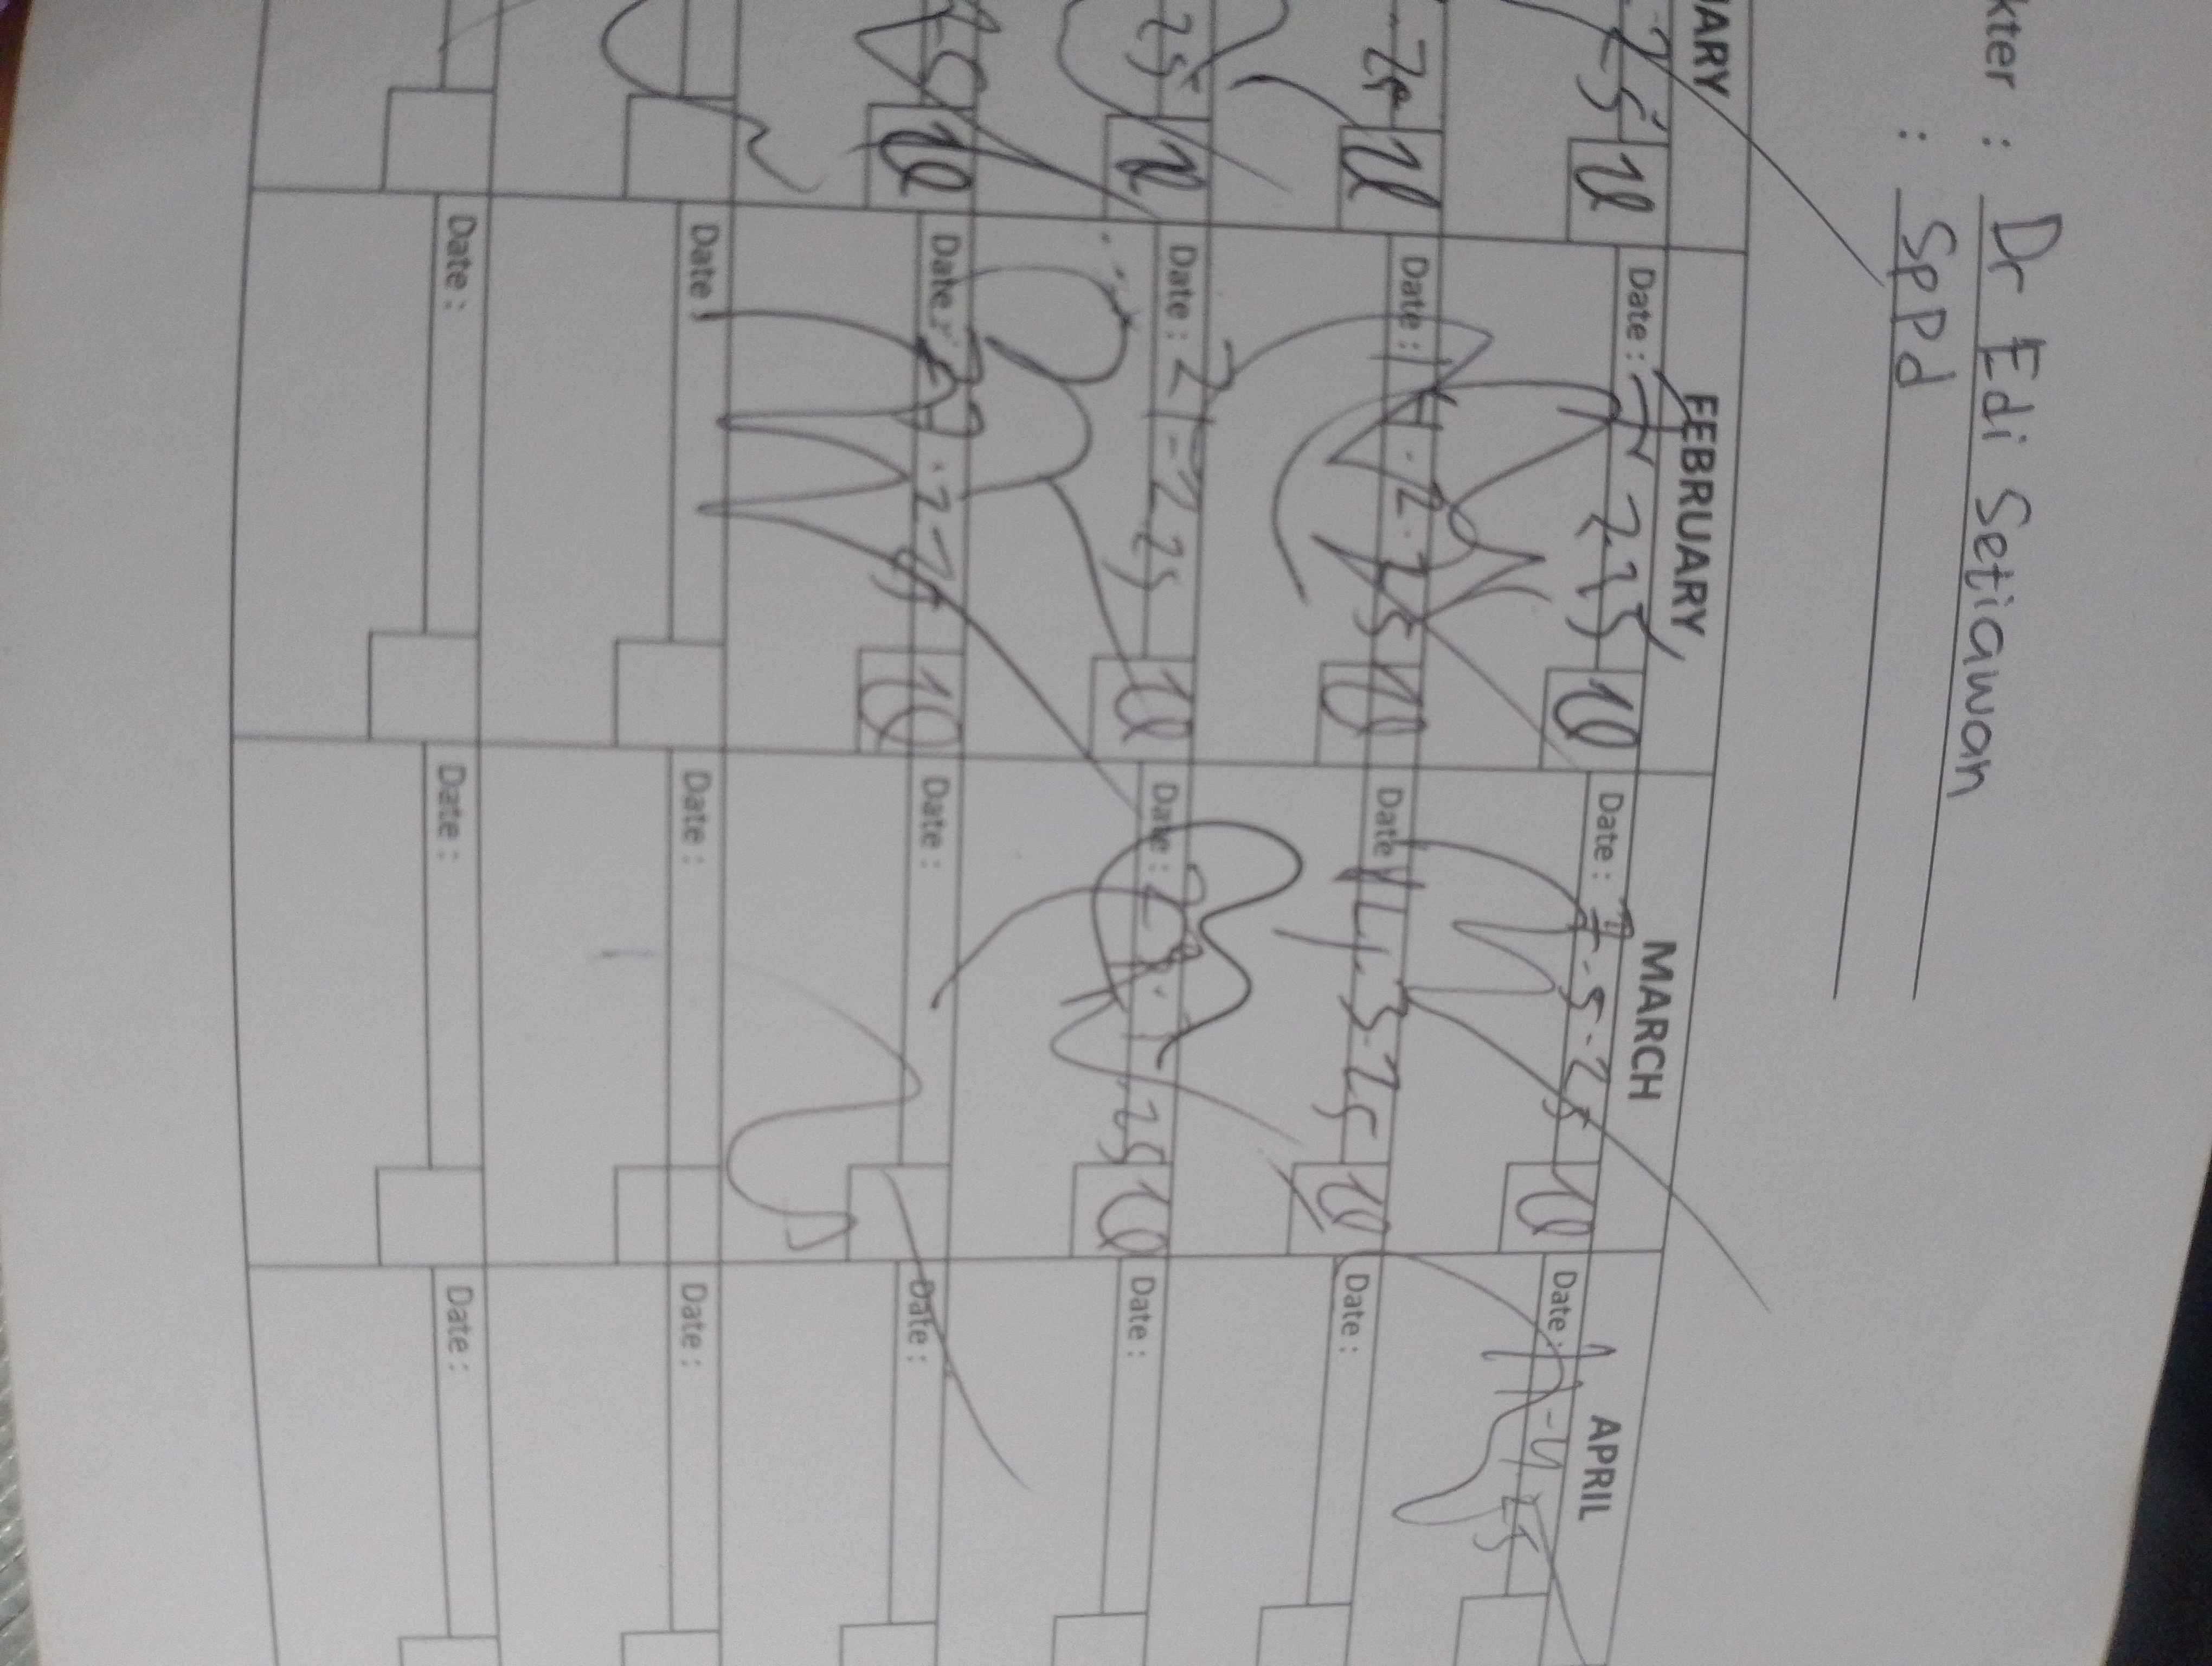 kter : Dr Edi Setiawan
: SpPd
UARY FEBRUARY MARCH APRIL
25 10 Date : 7 2 25 10 Date : 7-3-25 10 Date :
25 10 Date : 14.2.25 10 Date 14.3-25 10 Date :
25 10 Date : 21-2 25 10 Date : 25 10 Date :
10 Date : 10 Date : Date :
Date Date : Date :
Date : Date : Date :